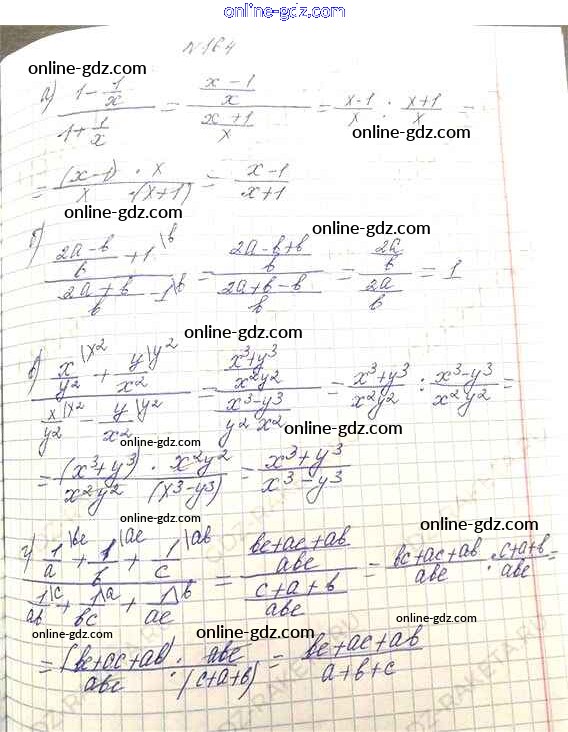 online-gdz.com
N164
online-gdz.com
а) (1 - 1/x)/(1 + 1/x) = ((x - 1)/x)/((x + 1)/x) = (x-1)/x : (x+1)/x =
online-gdz.com
= ((x-1) · x)/(x · (x+1)) = (x-1)/(x+1)
online-gdz.com
online-gdz.com
б) ((2a-b)/b + 1\b)/((2a+b)/b - 1\b) = ((2a-b+b)/b)/((2a+b-b)/b) = (2a/b)/(2a/b) = 1
online-gdz.com
online-gdz.com
в) (x/y²\x² + y/x²\y²)/(x/y²\x² - y/x²\y²) = ((x³+y³)/(x²y²))/((x³-y³)/(y²x²)) = (x³+y³)/(x²y²) : (x³-y³)/(x²y²) =
online-gdz.com
online-gdz.com
= ((x³+y³) · x²y²)/(x²y² · (x³-y³)) = (x³+y³)/(x³-y³)
online-gdz.com
online-gdz.com
г) (1/a\bc + 1/b\ac + 1/c\ab)/(1/ab\c + 1/bc\a + 1/ac\b) = ((bc+ac+ab)/abc)/((c+a+b)/abc) = (bc+ac+ab)/abc : (c+a+b)/abc =
online-gdz.com
online-gdz.com
online-gdz.com
online-gdz.com
online-gdz.com
= ((bc+ac+ab) · abc)/(abc · (c+a+b)) = (bc+ac+ab)/(a+b+c)
online-gdz.com